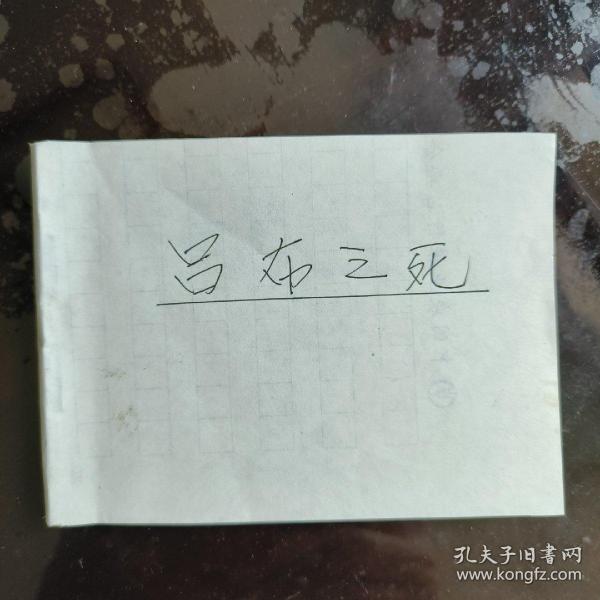 吕布之死
孔夫子旧书网
www.kongfz.com